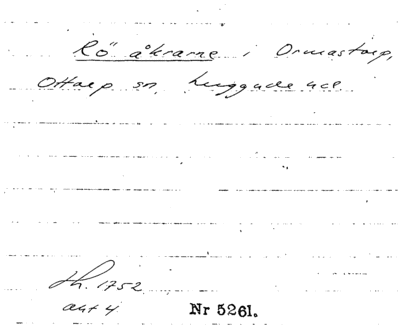 Rö åkrarne i Ormastorp,
Ottarp sn, Luggude hd
th. 1752
akt 4 Nr 5261.